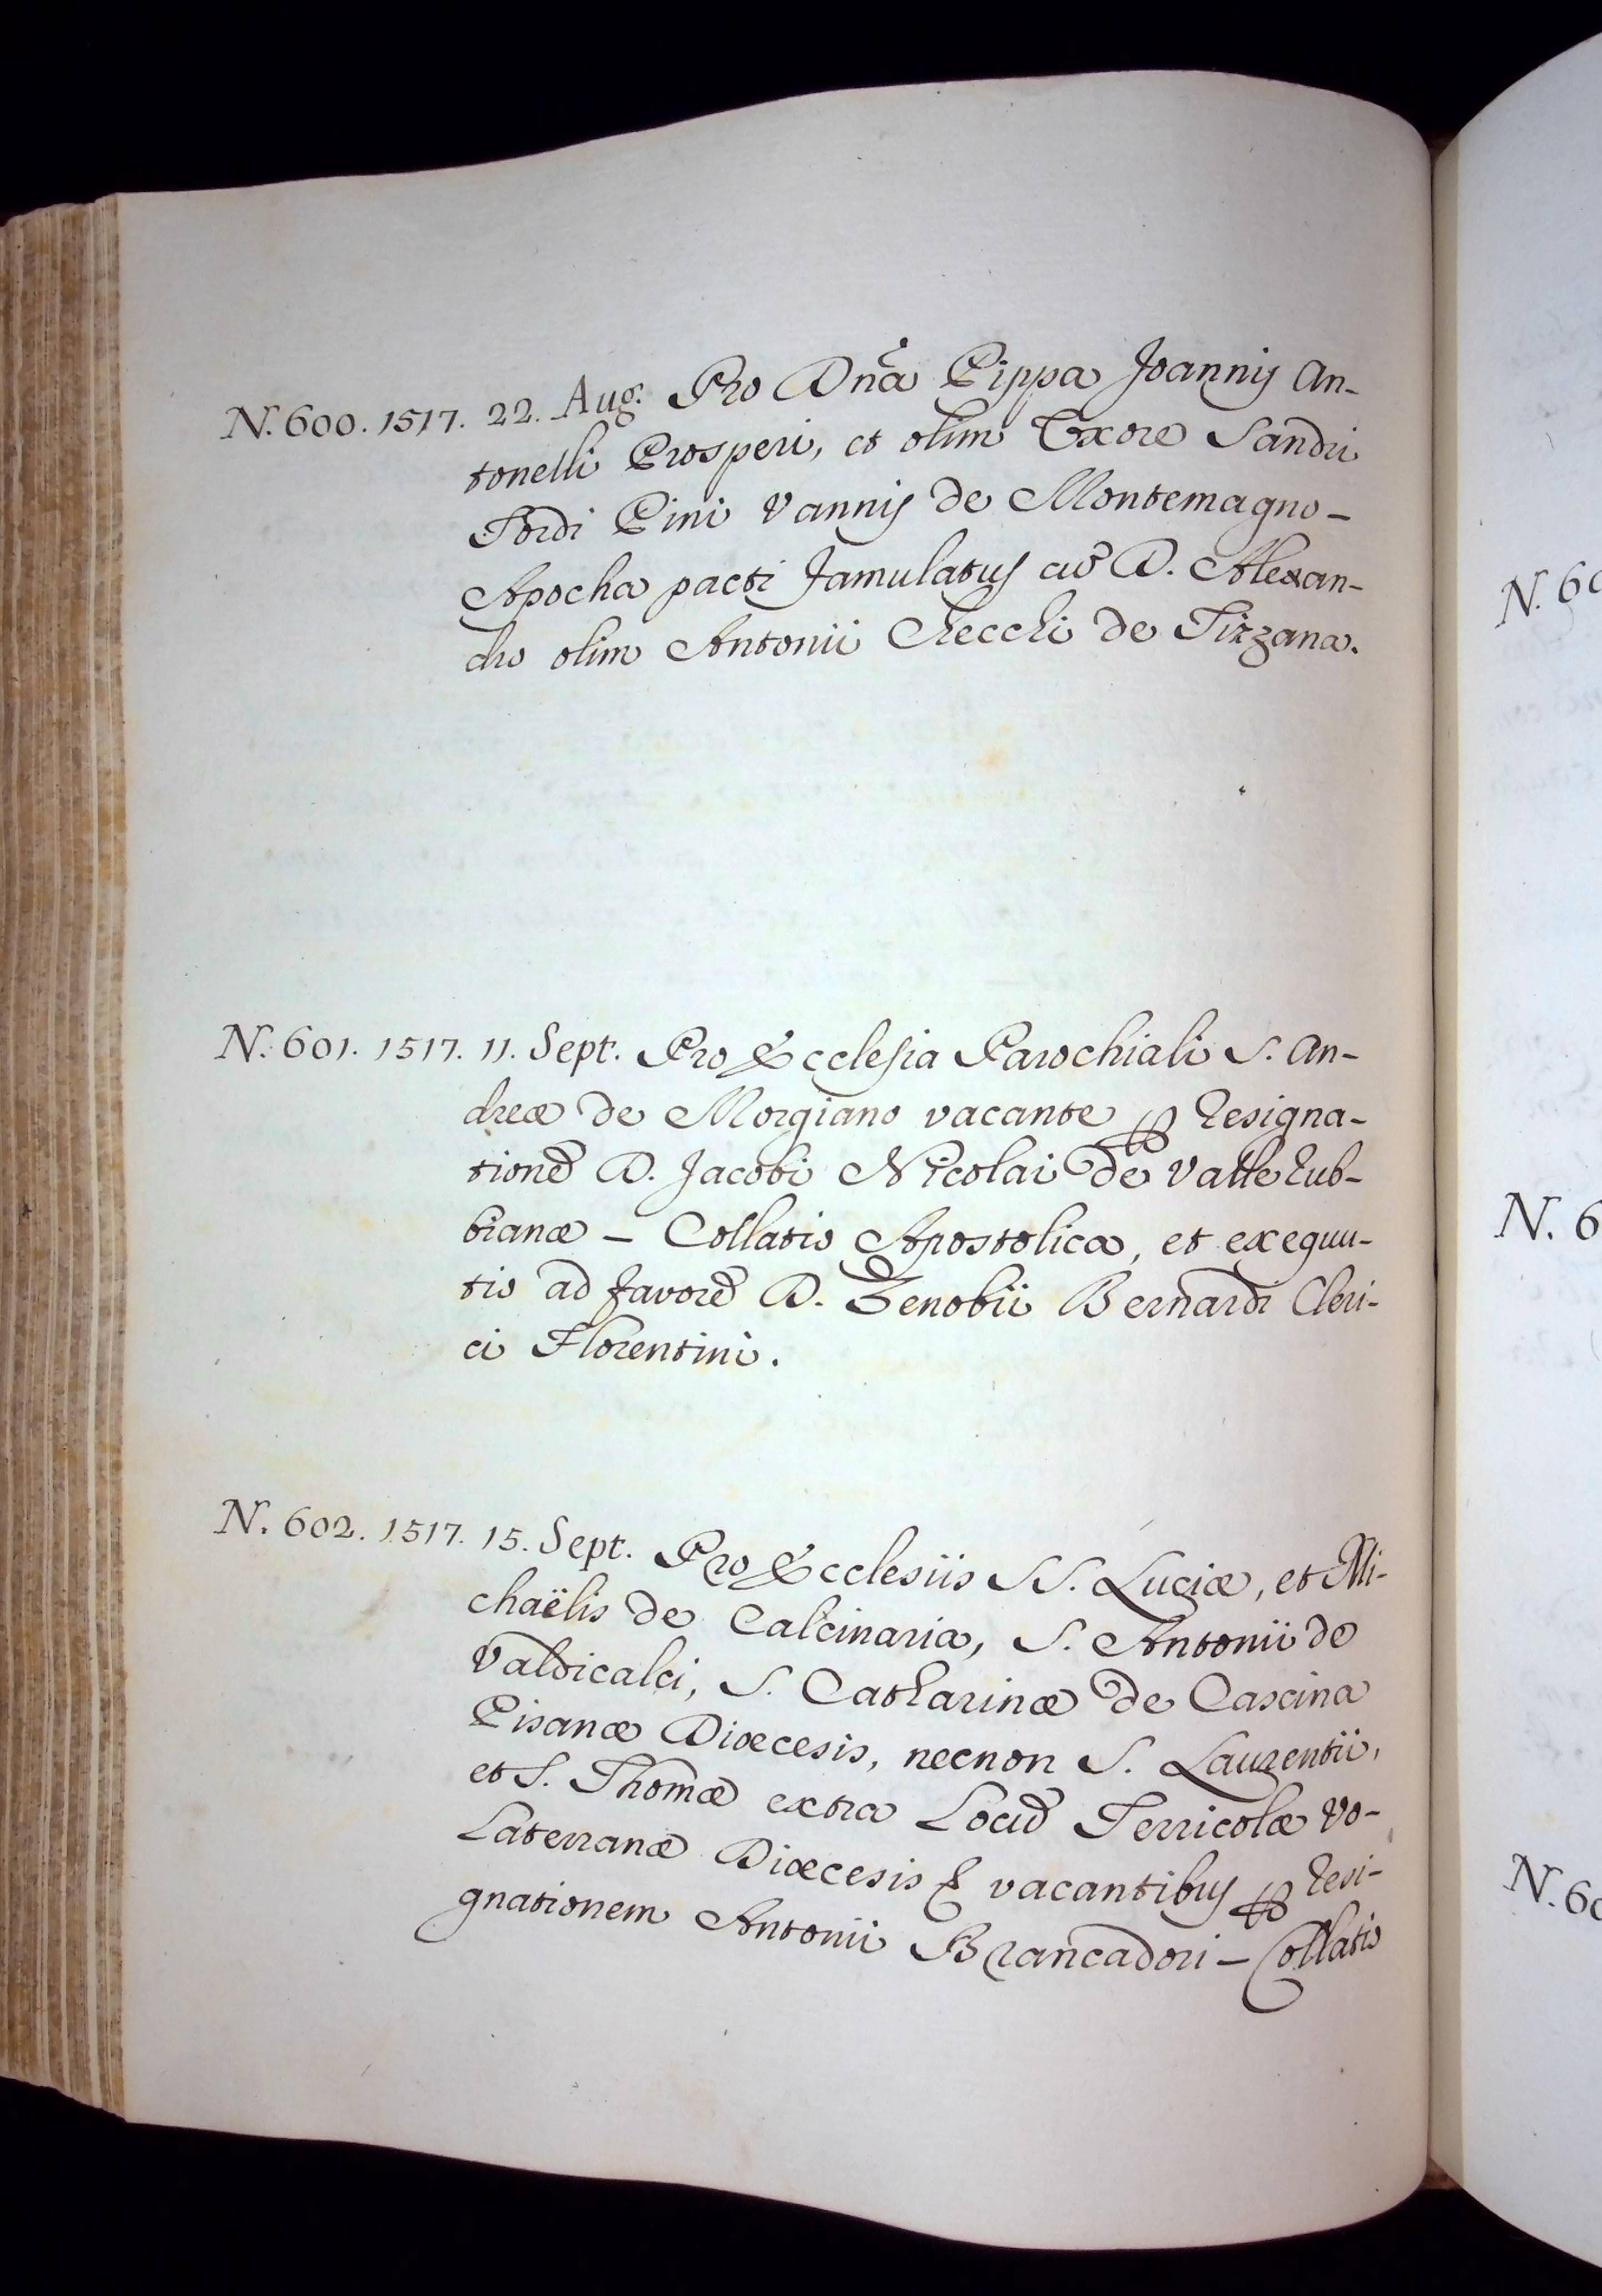 N. 600. 1517. 22. Aug. Pro Dña Pippa Joannis An-
tonelli Prosperi, et olim Uxore Sandri
Tordi Pini Vannis de Montemagno –
Apocha pacti famulatus cũ D. Alexan-
dro olim Antonii Checchi de Tizzana.
N. 601. 1517. 11. Sept. Pro Ecclesia Parochiali S. An-
dreæ de Morgiano vacante ꝑ Resigna-
tionẽ D. Jacobi Nicolai de Valle Rub-
bianæ – Collatio Apostolica, et exequu-
tio ad favorẽ D. Zenobii Bernardi Cleri-
ci Florentini.
N. 602. 1517. 15. Sept. Pro Ecclesiis SS. Luciæ, et Mi-
chaëlis de Calcinaria, S. Antonii de
Valdicalci, S. Catharinæ de Cascina
Pisanæ Diœcesis, necnon S. Laurentii,
et S. Thomæ extra Locũ Terricolæ Vo-
laterranæ Diœcesis & vacantibus ꝑ Resi-
gnationem Antonii Brancadori – Collatio
N. 60
N. 6
N. 60